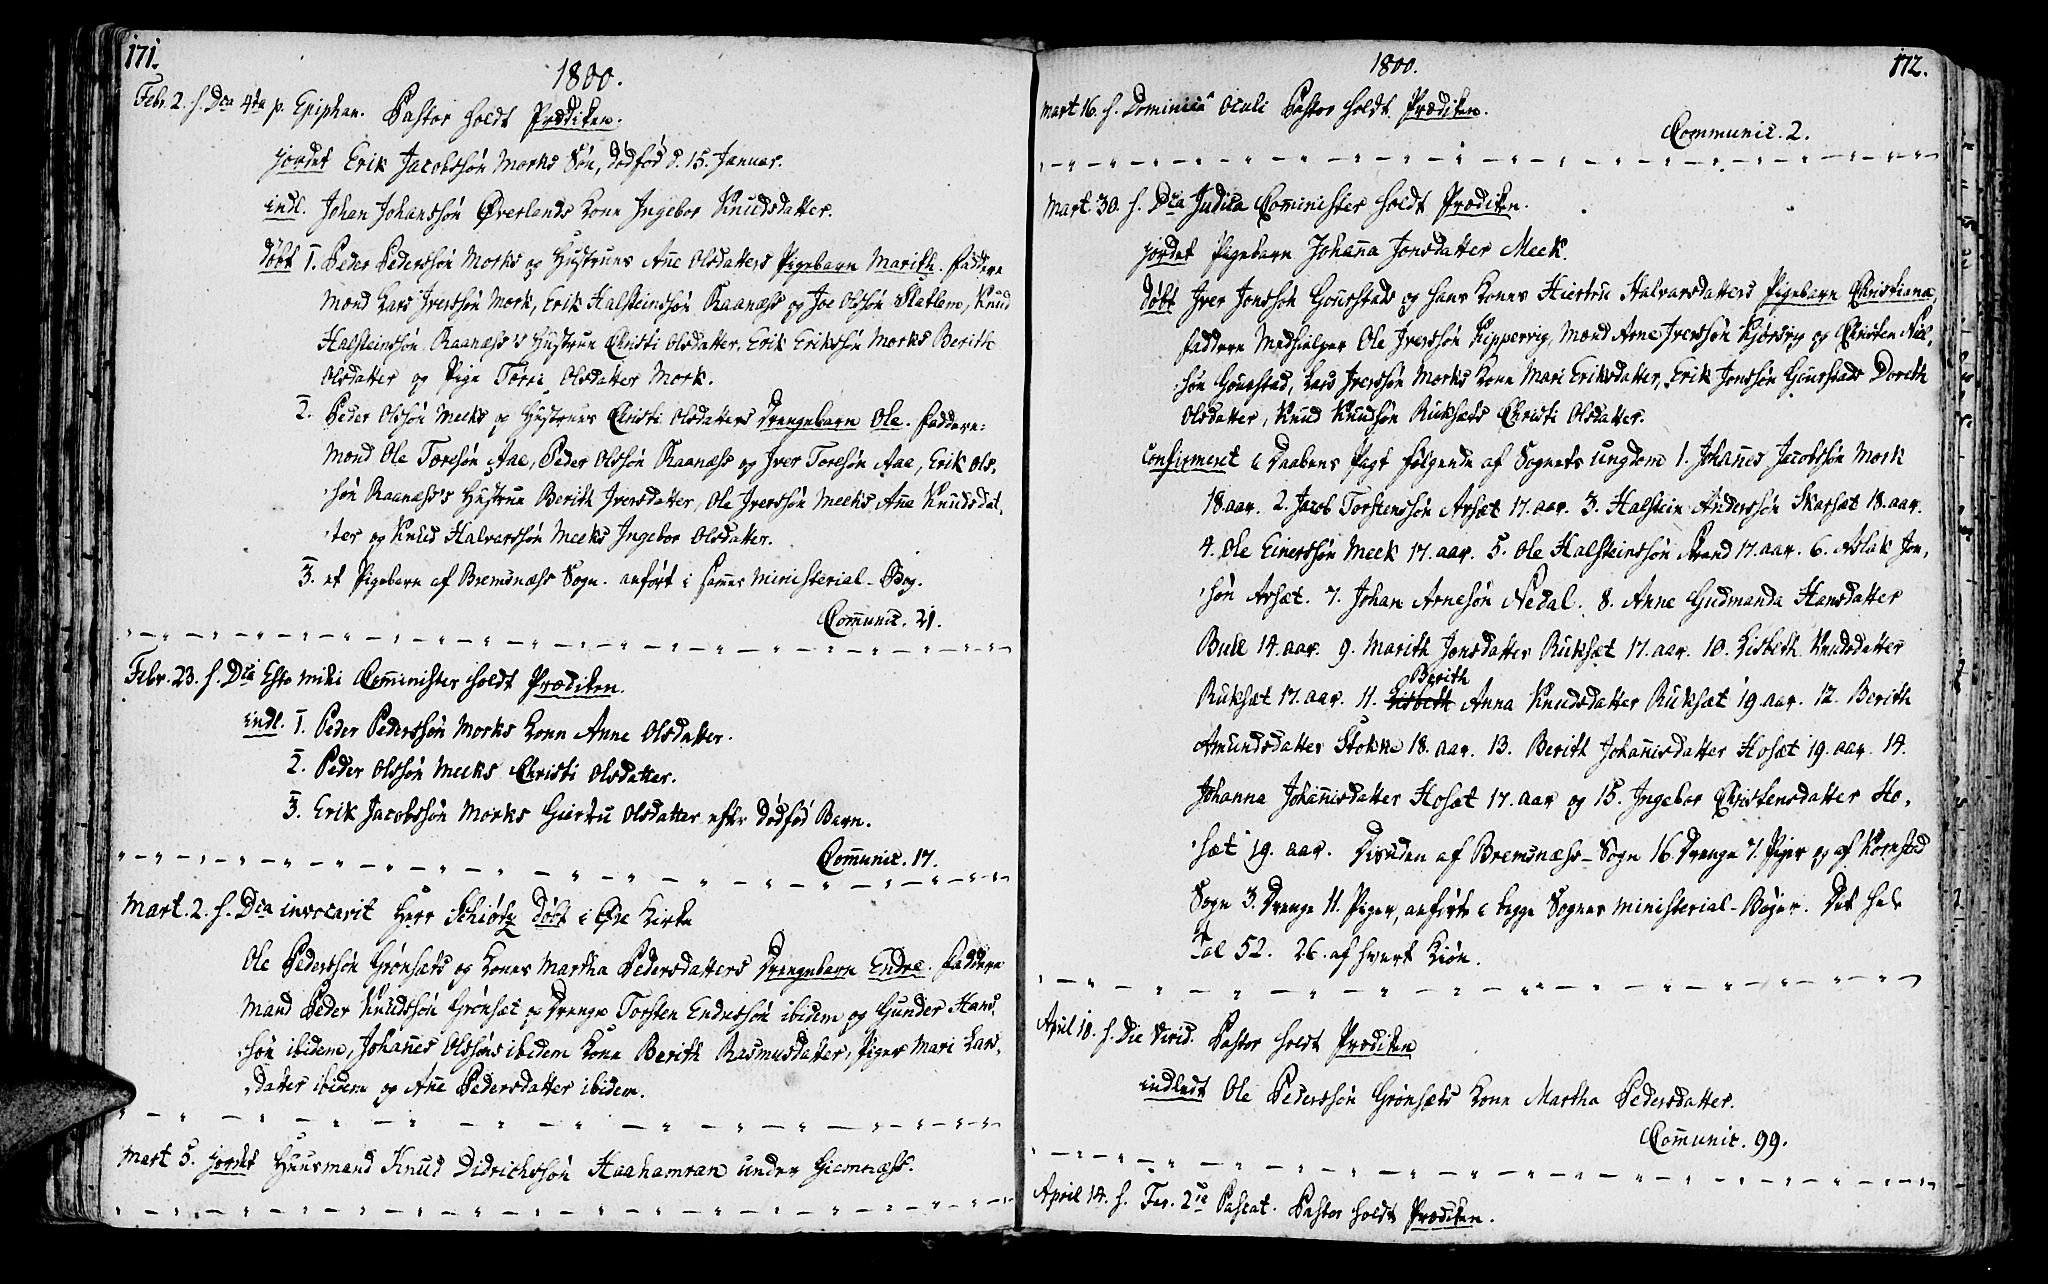 171.
1800.
Febr. 2. s. Dca 4ta p. Epiphan. Pastor holdt Prædiken.
jordet Erik Jacobssøn Morks Søn, dödfød d. 15. Januar.
indl. Johan Johanssøn Øverlands Kone Ingebor Knudsdatter.
döbt 1. Peder Pederssøn Morks og Hustrues Anne Olsdatters Pigebarn Marith. Faddere
Mend Lars Iverssøn Mork, Erik Halsteinssøn Raanæss og Joe Olssøn Slatlem, Knud
Halsteinssøn Raanæss's Hustrue Christi Olsdatter, Erik Erikssøn Morks Berith
Olsdatter og Pige Torei Olsdatter Mork.
2. Peder Olssøn Meeks og Hustrues Christi Olsdatters Drengebarn Ole. Faddere:
Mend Ole Toresøn Aae, Peder Olssøn Raanæss og Iver Toresøn Aae, Erik Ols-
søn Raanæss's Hustrue Berith Iversdatter, Ole Iverssøn Meeks Anne Knudsdat-
ter og Knud Halvarssøn Meeks Ingebor Olsdatter.
3. et Pigebarn af Bremsnæss Sogn. anført i sammes Ministerial-Bog.
Communic. 21.
Febr. 23. s. Dca Esto mihi Comminister holdt Prædiken.
indl. 1. Peder Pederssøn Morks Kone Anne Olsdatter.
2. Peder Olssøn Meeks Christi Olsdatter.
3. Erik Jacobssøn Morks Giertru Olsdatter efter dödfød Barn.
Communic. 17.
Mart. 2. s. Dca invocavit Herr Schiøtz döbt i Øre Kirke
Ole Pederssøn Grönsæts og Kones Martha Pedersdatters Drengebarn Endre. Faddere
Mand Peder Knudssøn Grönsæt og Drenge Torsten Endressøn ibidem og Gunder Hans-
søn ibidem, Johannes Olssøns ibidem Kone Berith Rasmusdatter, Piger Mari Lars-
datter ibidem og Anne Pedersdatter ibidem.
Mart 5. jordet Huusmand Knud Didrichssøn Haahamran under Giemnæss.
1800.
172.
Mart 16. s. Dominica Oculi Pastor holdt Prædiken.
Communic. 2.
Mart. 30. s. Dca Judica Comminister holdt Prædiken.
jordet Pigebarn Johanna Jonsdatter Meek.
döbt Iver Jonssøn Gourstads og hans Kones Giertru Halvarsdatters Pigebarn Christiana,
Faddere Medhielper Ole Iverssøn Kippervig, Mend Arne Iverssøn Kjörsvig og Christen Niel-
søn Gourstad, Lars Iverssøn Morks Kone Mari Eriksdatter, Erik Jonssøn Gourstads Dorith
Olsdatter, Knud Knudssøn Ruksæts Christi Olsdatter.
Confirmert i Daabens Pagt følgende af Sognets ungdom 1. Johannes Jacobssøn Mork
18. aar. 2. Jacob Torstenssøn Arsæt 17. aar. 3. Halstein Anderssøn Skarsæt 18. aar.
4. Ole Einerssøn Meek 17. aar. 5. Ole Halsteinssøn Strand 17. aar. 6. Aslak Jon-
søn Arsæt. 7. Johan Arnesøn Nedal. 8. Anne Gudmanda Hansdatter
Bull 14. aar. 9. Marith Jonsdatter Ruksæt 17. aar. 10. Lisbeth Knudsdatter
Berith
Ruksæt 17. aar. 11. Lisbeth Anna Knudsdatter Ruksæt 19 aar. 12. Berith
Amundsdatter Stokke 18. aar. 13. Berith Johannisdatter Hosæt 19. aar. 14.
Johanna Johannisdatter Hosæt 17. aar og 15. Ingebor Christensdatter Ho-
sæt 19. aar. Desuden af Bremsnæss-Sogn 16. Drenge 7. Piger og af Kornstad
Sogn 3. Drenge 11. Piger, anførte i begge Sognes Ministerial-Bøger. Det hele
Tal 52. 26. af hvert Kiön.
April 10. s. Die Virid. Pastor holdt Prædiken
indledt Ole Pederssøn Grönsæts Kone Martha Pedersdatter.
Communic. 99.
April 14. s. Fer. 2da Pascat. Pastor holdt Prædiken.